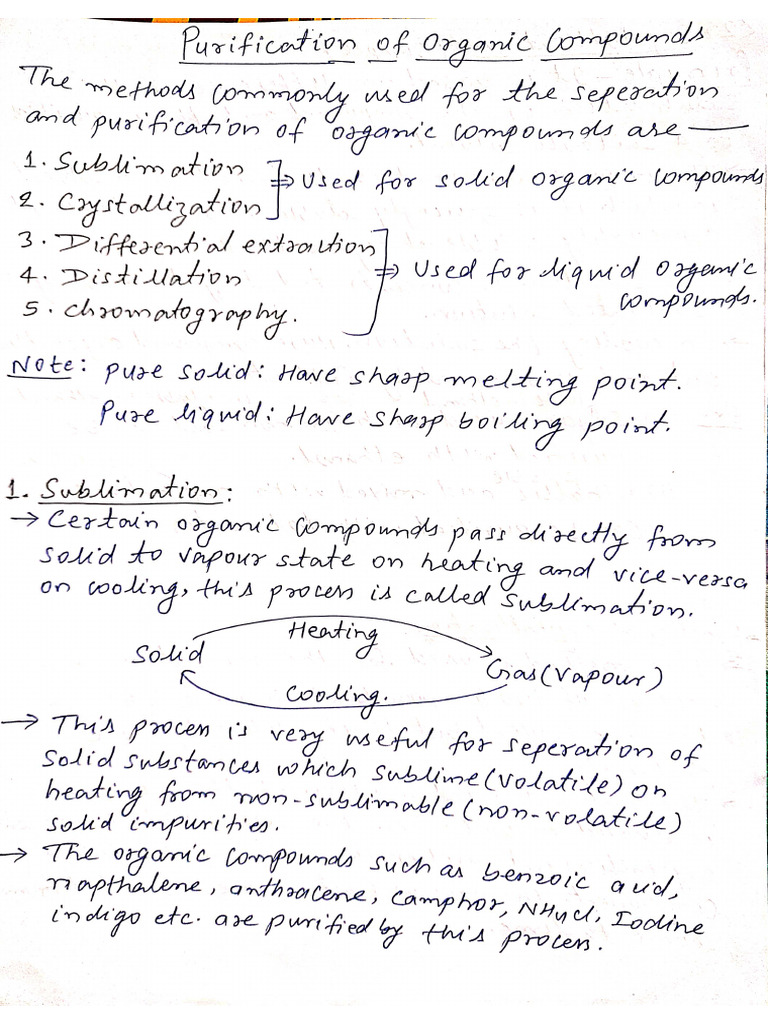 Purification of Organic Compounds
The methods commonly used for the seperation
and purification of organic compounds are —
1. Sublimation
2. Crystallization
⇒ Used for solid organic compounds
3. Differential extraction
4. Distillation
5. Chromatography.
⇒ Used for liquid organic
compounds.
Note: Pure solid: Have sharp melting point.
Pure liquid: Have sharp boiling point.
1. Sublimation:
→ Certain organic compounds pass directly from
solid to vapour state on heating and vice-versa
on cooling, this process is called sublimation.
Heating
Solid
Gas(vapour)
Cooling.
→ This process is very useful for seperation of
solid substances which sublime(volatile) on
heating from non-sublimable(non-volatile)
solid impurities.
→ The organic compounds such as benzoic acid,
napthalene, anthracene, camphor, NH4Cl, Iodine
indigo etc. are purified by this process.